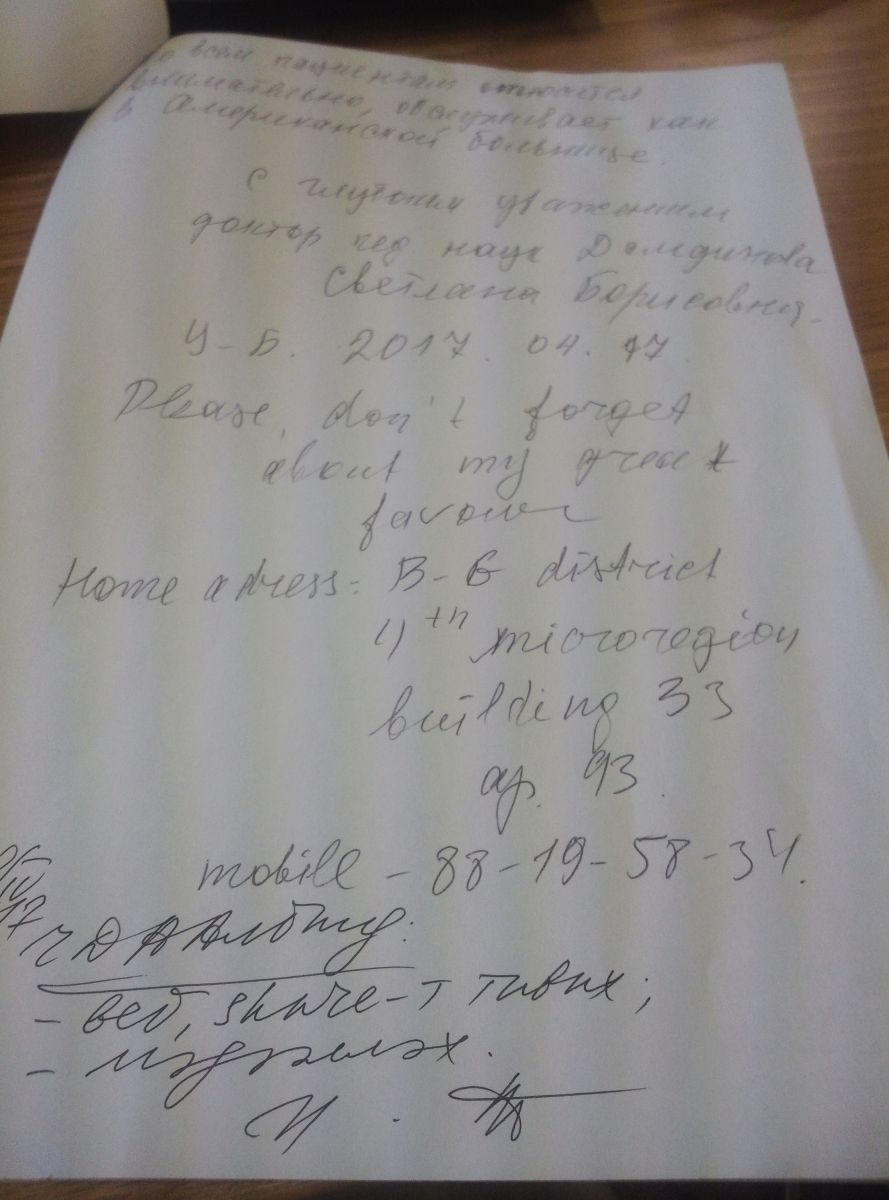 всем пациентам относится
внимательно, обслуживает как
в Американской больнице.
С глубоким уважением
доктор пед наук Домдинова
Светлана Борисовна.
У-Б. 2017. 04. 17
Please, don't forget
about my great
favour
Home adress: B-G district
4th microregion
building 33
ap. 93.
mobile - 88-19-58-34.
- веб, share-т тавих;
-